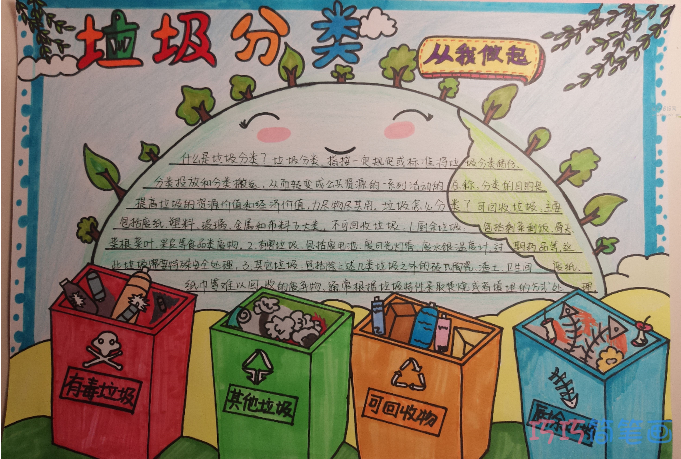 垃圾分类
从我做起
什么是垃圾分类？垃圾分类，指按一定规定或标准将垃圾分类储存、
分类投放和分类搬运，从而转变成公共资源的一系列活动的总称。分类的目的是
提高垃圾的资源价值和经济价值，力争物尽其用。垃圾怎么分类？可回收垃圾，主要
包括废纸、塑料、玻璃、金属和布料五大类。不可回收垃圾，1.厨余垃圾，包括剩菜剩饭、骨头、
菜根菜叶、果皮等食品类废物。2.有害垃圾，包括废电池、废日光灯管、废水银温度计、过期药品等，这
些垃圾需要特殊安全处理。3.其它垃圾，包括除上述几类垃圾之外的砖瓦陶瓷、渣土、卫生间废纸、
纸巾等难以回收的废弃物，通常根据垃圾特性采取焚烧或者填埋的方式处理
有毒垃圾
其他垃圾
可回收物
巧巧简笔画